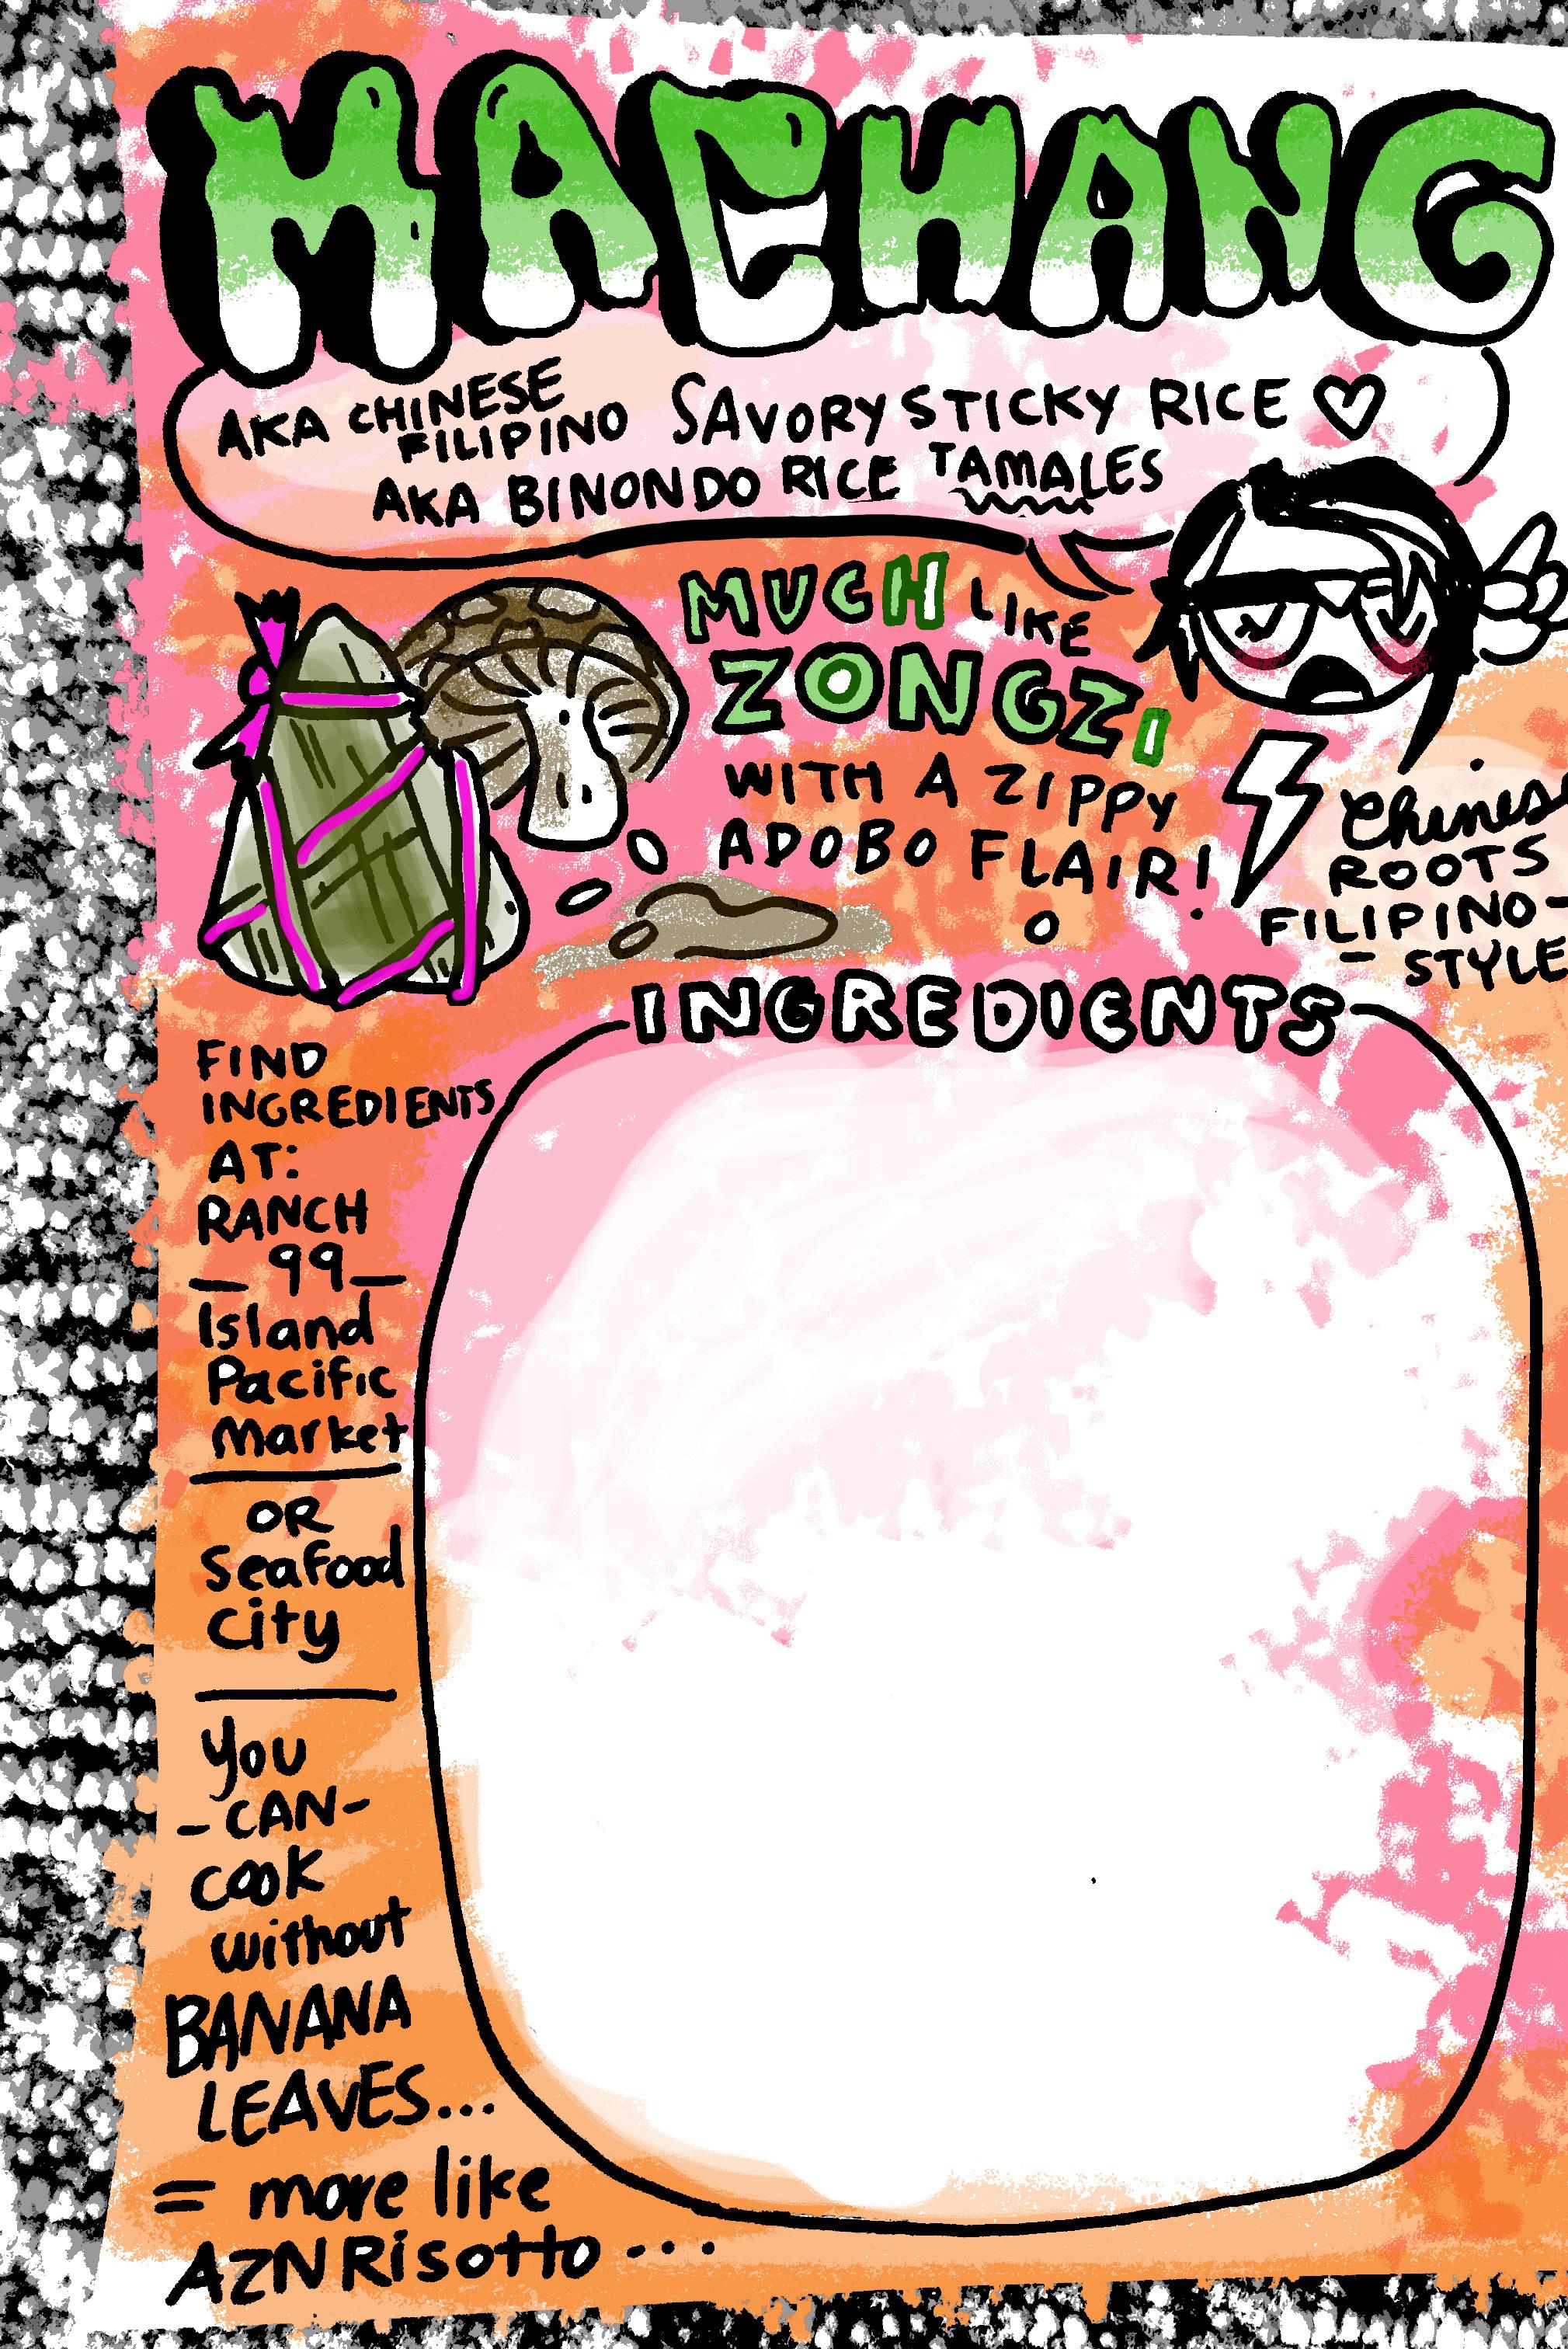 MACHANG
AKA CHINESE FILIPINO SAVORY STICKY RICE
AKA BINONDO RICE TAMALES
MUCH LIKE
ZONGZI
WITH A ZIPPY
ADOBO FLAIR!
Chinese
ROOTS
FILIPINO-
- STYLE
INGREDIENTS
FIND
INGREDIENTS
AT:
RANCH
99
Island
Pacific
Market
OR
Seafood
City
You
-CAN-
cook
without
BANANA
LEAVES...
= more like
AZN Risotto ...